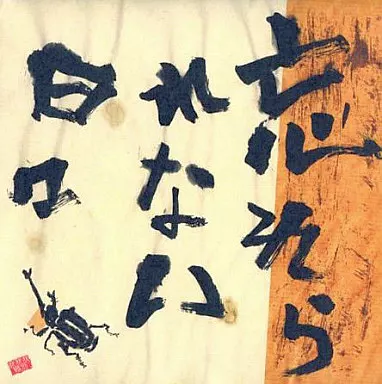 忘れら
れない
日々